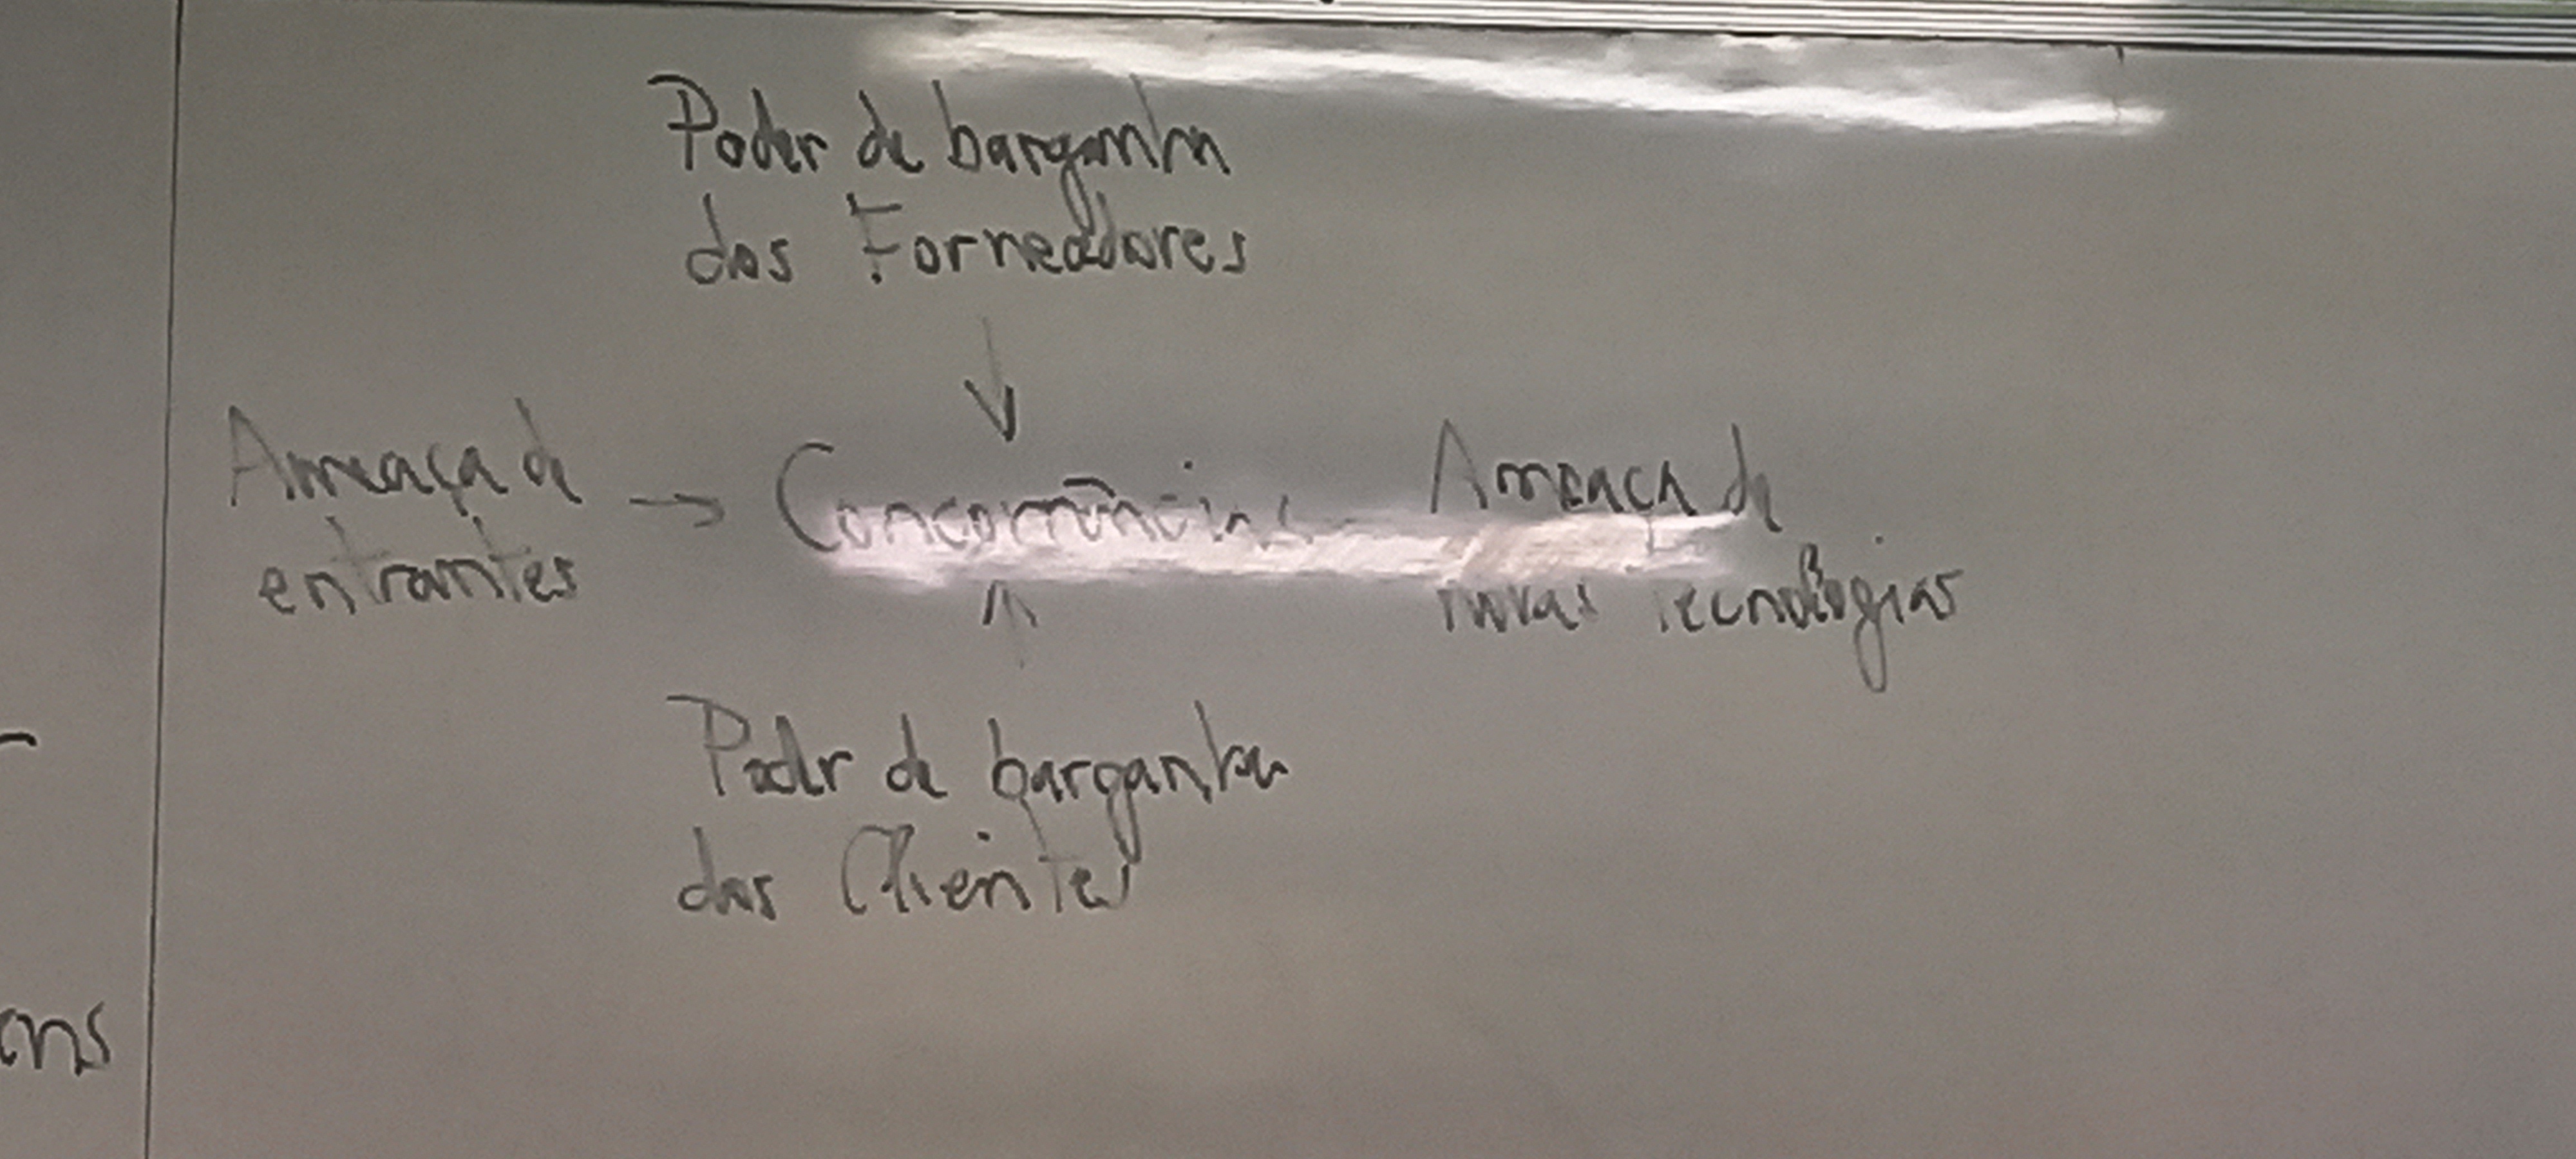 Poder de barganha
dos Fornecedores
Ameaça de
entrantes
→ Concorrência ←
Ameaça de
novas Tecnologias
Poder de barganha
dos Clientes
ons